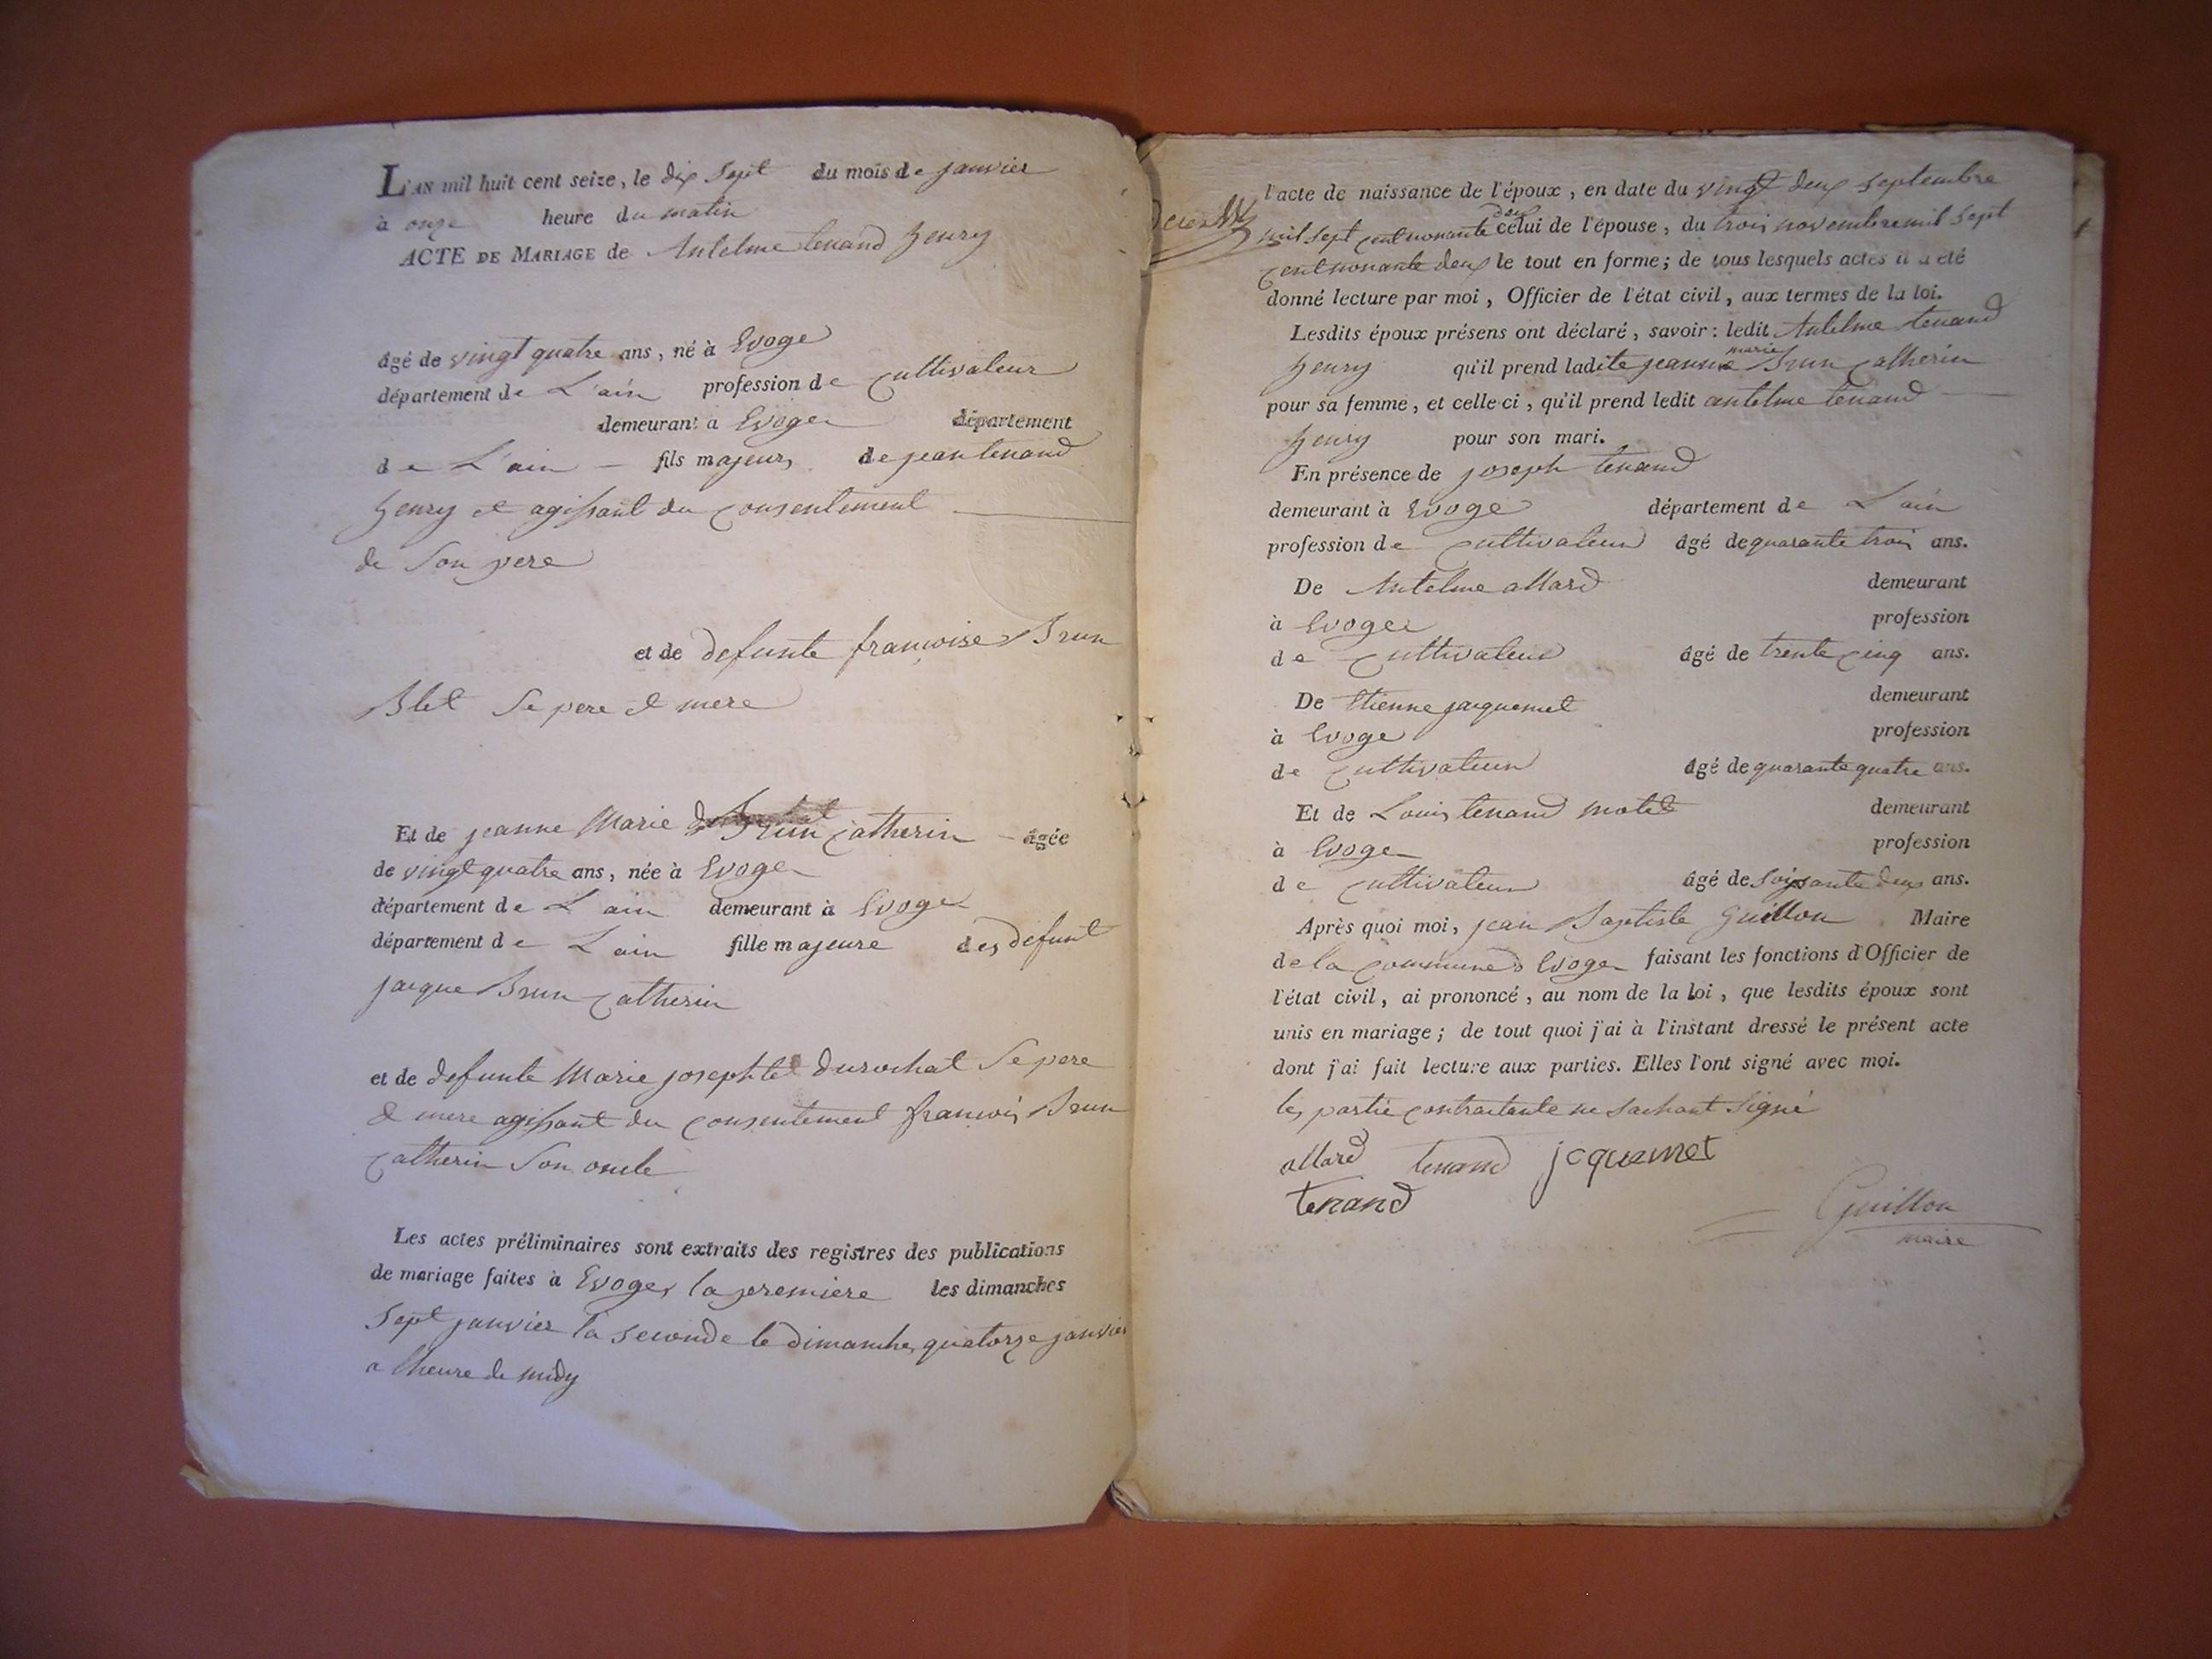 L'AN mil huit cent seize, le dix Sept du mois de janvier
à onze heure du matin
ACTE DE MARIAGE de Antelme tenand henry
âgé de vingt quatre ans, né à Evoge
département de L'ain profession de cultivateur
demeurant à Evoge département
de L'ain — fils majeur, de jean tenand
henry et agissant du consentement
de Son pere
et de defunte francoise Brun
Blet Se pere et mere
Et de jeanne Marie Brun Catherin - âgée
de vingt quatre ans, née à Evoge
département de L ain demeurant à Evoge
département de L ain fille majeure des defunt
jacque Brun Catherin
et de defunte Marie josephte durochat Se pere
et mere agissant du consentement francois Brun
Catherin Son oncle
Les actes préliminaires sont extraits des registres des publications
de mariage faites à Evoges la premiere les dimanches
Sept janvier la seconde le dimanche quatorze janvier
a lheure de midy
l'acte de naissance de l'époux, en date du vingt deux septembre
deux
mil sept cent nonante celui de l'épouse, du trois novembre mil sept
cent nonante deux le tout en forme; de tous lesquels actes il a été
donné lecture par moi, Officier de l'état civil, aux termes de la loi.
Lesdits époux présens ont déclaré, savoir: ledit Antelme tenand
marie
henry qu'il prend ladite jeanne Brun Catherin
pour sa femme, et celle ci, qu'il prend ledit antelme tenand —
henry pour son mari.
En présence de joseph tenand
demeurant à Evoge département de L ain
profession de cultivateur âgé de quarante trois ans.
De Antelme allard demeurant
à Evoge profession
de cultivateur âgé de trente cinq ans.
De Etienne jacquemet demeurant
à Evoge profession
de cultivateur âgé de quarante quatre ans.
Et de Louis tenand motet demeurant
à Evoge profession
de cultivateur âgé de soixante deux ans.
Après quoi moi, jean Baptiste Guillon Maire
de la commune d Evoge faisant les fonctions d'Officier de
l'état civil, ai prononcé, au nom de la loi, que lesdits époux sont
unis en mariage; de tout quoi j'ai à l'instant dressé le présent acte
dont j'ai fait lecture aux parties. Elles l'ont signé avec moi.
les partie contractante ne sachant signé
allard tenand jcquemet
tenand
Guillon
maire